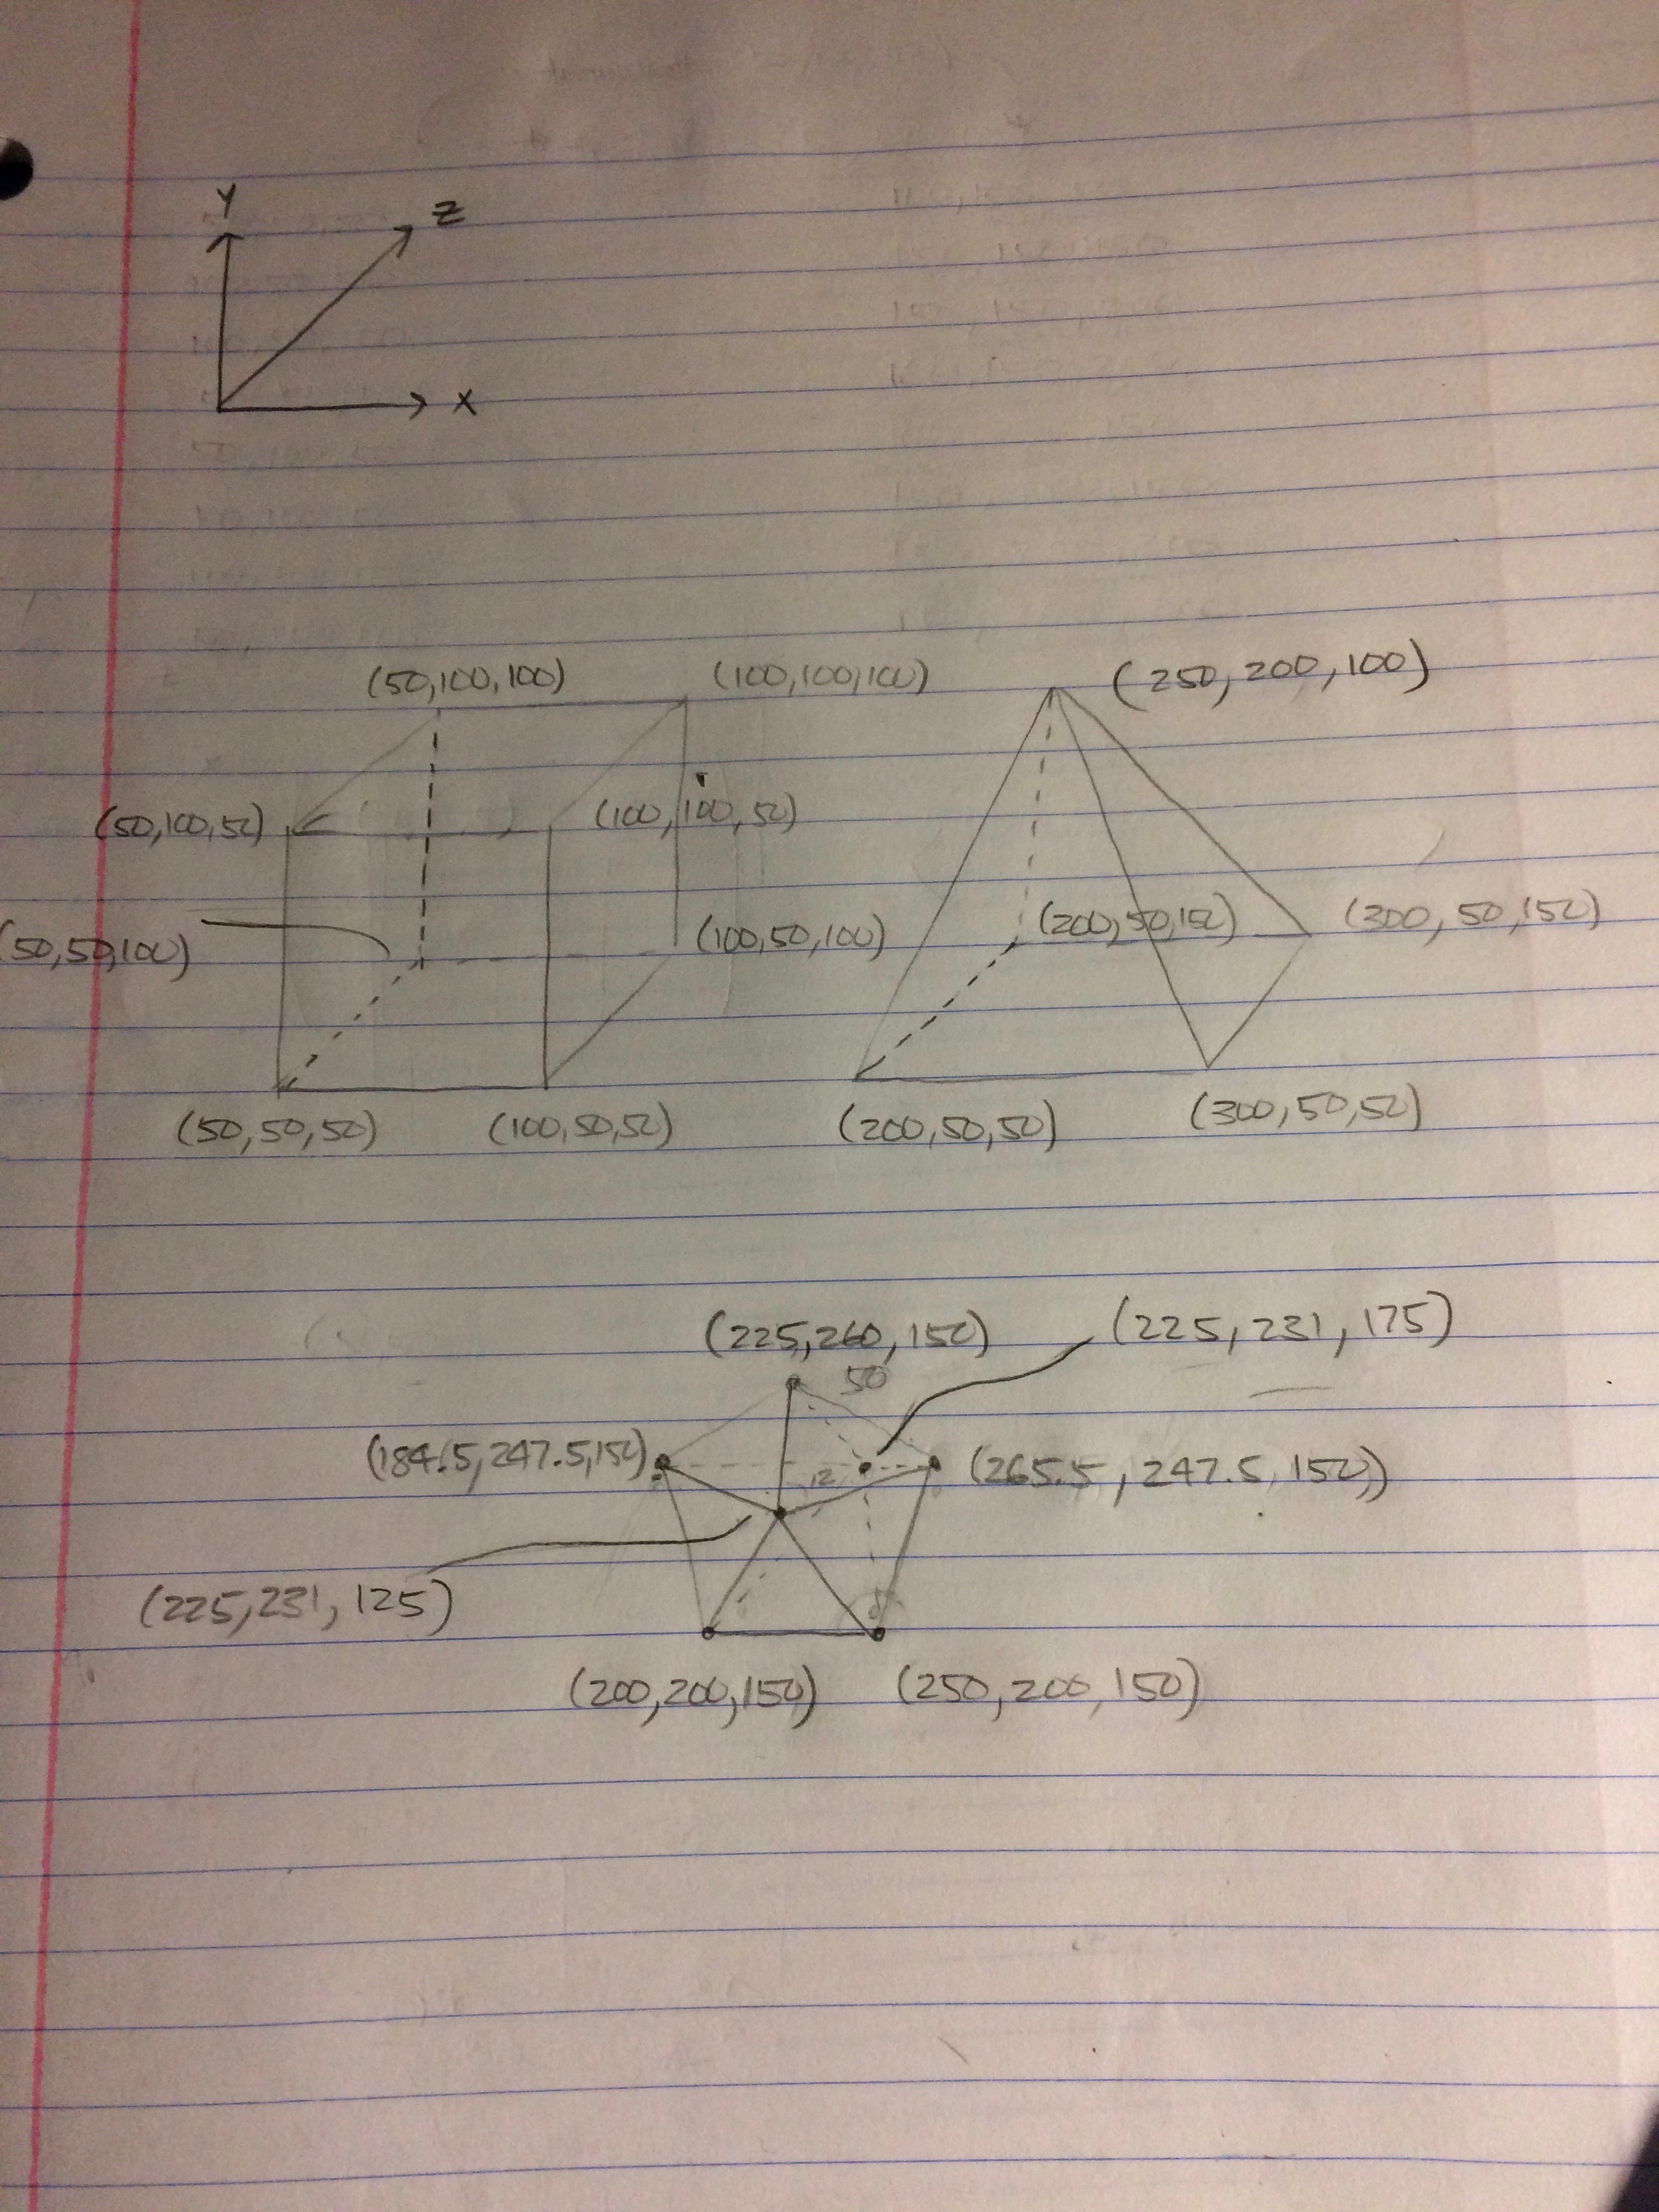 Y
Z
X
(50,100,100)
(100,100,100)
(250,200,100)
(50,100,50)
(100,100,50)
(50,50,100)
(100,50,100)
(200,50,150)
(300,50,150)
(50,50,50)
(100,50,50)
(200,50,50)
(300,50,50)
(225,260,150)
(225,231,175)
50
(184.5,247.5,150)
12
(265.5,247.5,150))
(225,231,125)
(200,200,150)
(250,200,150)